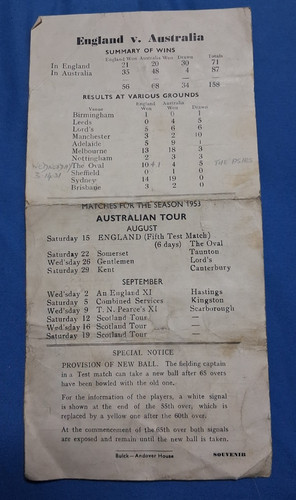 England v. Australia
SUMMARY OF WINS
England Won Australia Won Drawn Totals
In England 21 20 30 71
In Australia 35 48 4 87
56 68 34 158
RESULTS AT VARIOUS GROUNDS
Venue England Won Australia Won Drawn
Birmingham 1 0 1
Leeds 0 4 5
Lord's 5 6 6
Manchester 3 2 10
Adelaide 5 9 1
Melbourne 13 18 3
Nottingham 2 3 3
The Oval 10 4 5
Sheffield 0 1 0
Sydney 14 19 0
Brisbane 3 2 0
MATCHES FOR THE SEASON 1953
AUSTRALIAN TOUR
AUGUST
Saturday 15 ENGLAND (Fifth Test Match)
(6 days) The Oval
Saturday 22 Somerset Taunton
Wed'sday 26 Gentlemen Lord's
Saturday 29 Kent Canterbury
SEPTEMBER
Wed'sday 2 An England XI Hastings
Saturday 5 Combined Services Kingston
Wed'sday 9 T. N. Pearce's XI Scarborough
Saturday 12 Scotland Tour —
Wed'sday 16 Scotland Tour —
Saturday 19 Scotland Tour —
SPECIAL NOTICE
PROVISION OF NEW BALL. The fielding captain
in a Test match can take a new ball after 65 overs
have been bowled with the old one.
For the information of the players, a white signal
is shown at the end of the 55th over, which is
replaced by a yellow one after the 60th over.
At the commencement of the 65th over both signals
are exposed and remain until the new ball is taken.
Buick—Andover House SOUVENIR